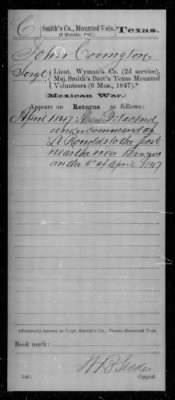 C Smith's Co., Mounted Vols. Texas.
(6 Months, 1847.)
John Covington
Sergt, Lieut. Wyman's Co. (2d service),
Maj. Smith's Batt'n Texas Mounted
Volunteers (6 Mos., 1847).*
Mexican War.
Appears on Returns as follows:
April 1847, Detached
under command of
Lt to the post
near the river
on the 6th of April 1847
*Formerly known as Capt. Smith's Co., Texas Mounted Vols.
Book mark:
Copyist.